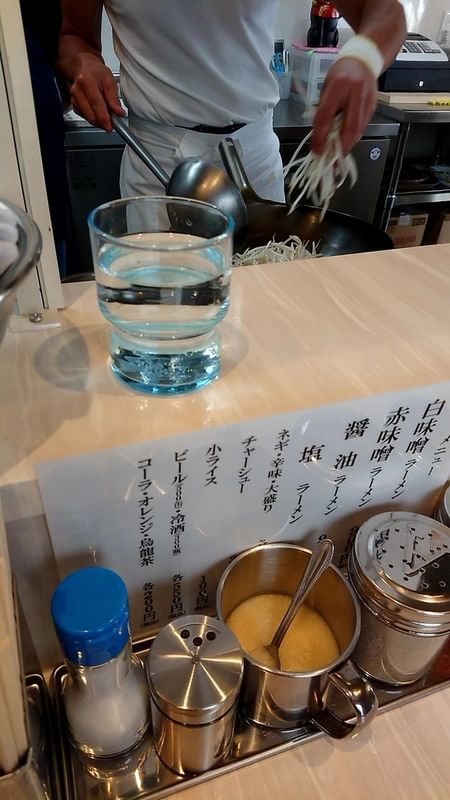 メニュー
白味噌
赤味噌 ラーメン
醤油 ラーメン
塩 ラーメン
ネギ・辛味・大盛り
チャーシュー
小ライス
ビール(500缶)・冷酒(300瓶) 各550円(税込)
コーラ・オレンジ・烏龍茶 各200円(税込)